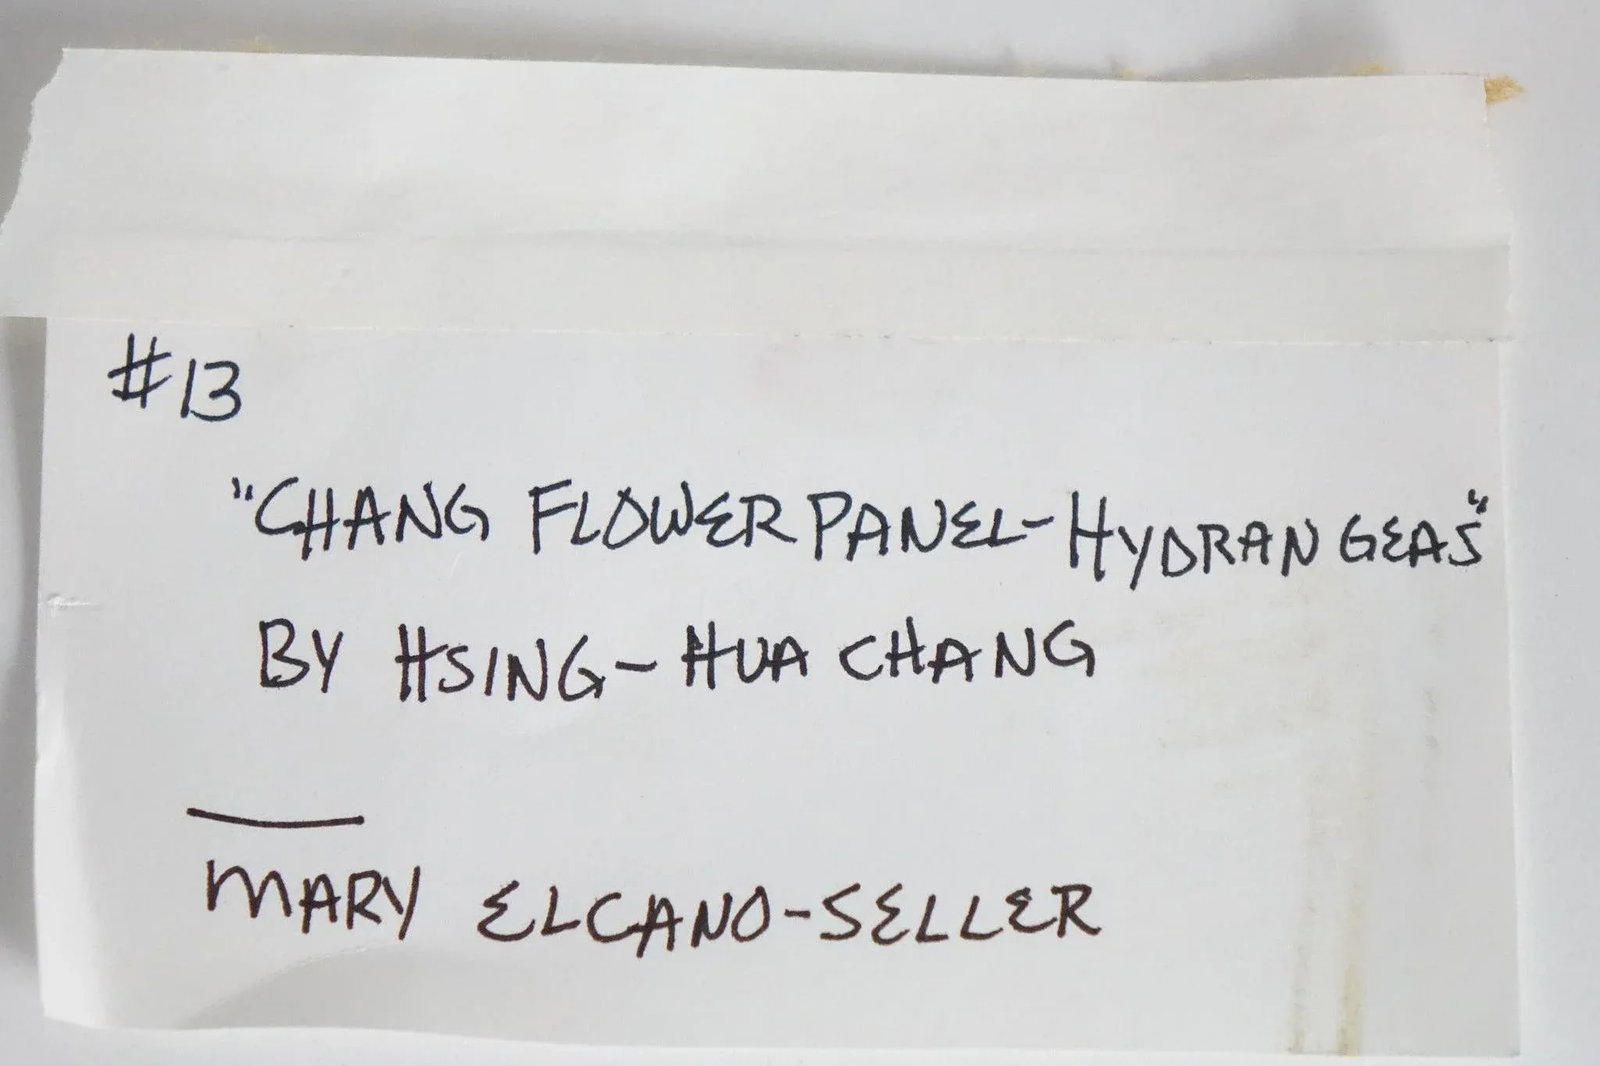 #13
"CHANG FLOWER PANEL-HYDRANGEAS"
BY HSING-HUA CHANG
MARY ELCANO-SELLER